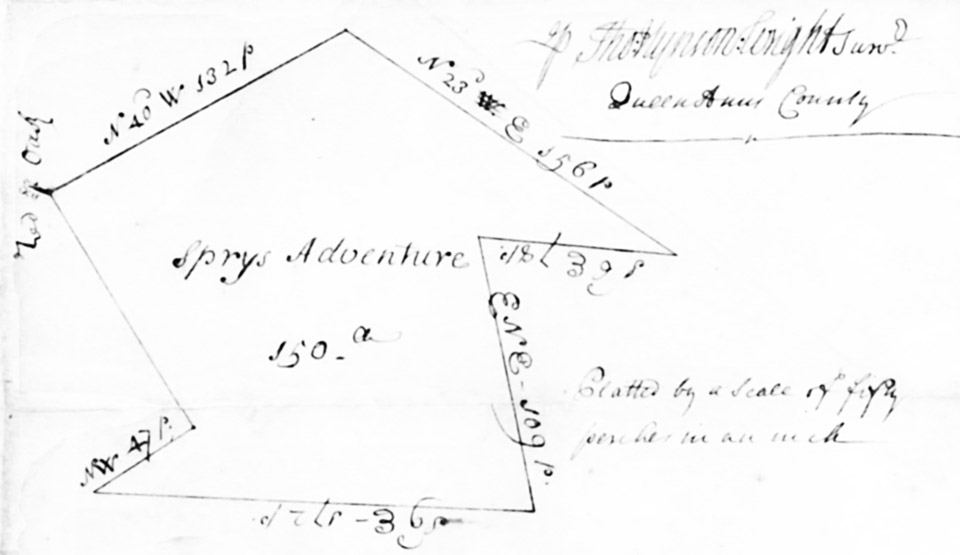 p Tho Hynson Wright Survd
Queen Anns County
N 40d W 132 p
N 23d E 156 p
Red Oak
Sprys Adventure
150 - a
ENE - 109 p.
NW 47 p.
Platted by a scale of fifty
perches in an inch